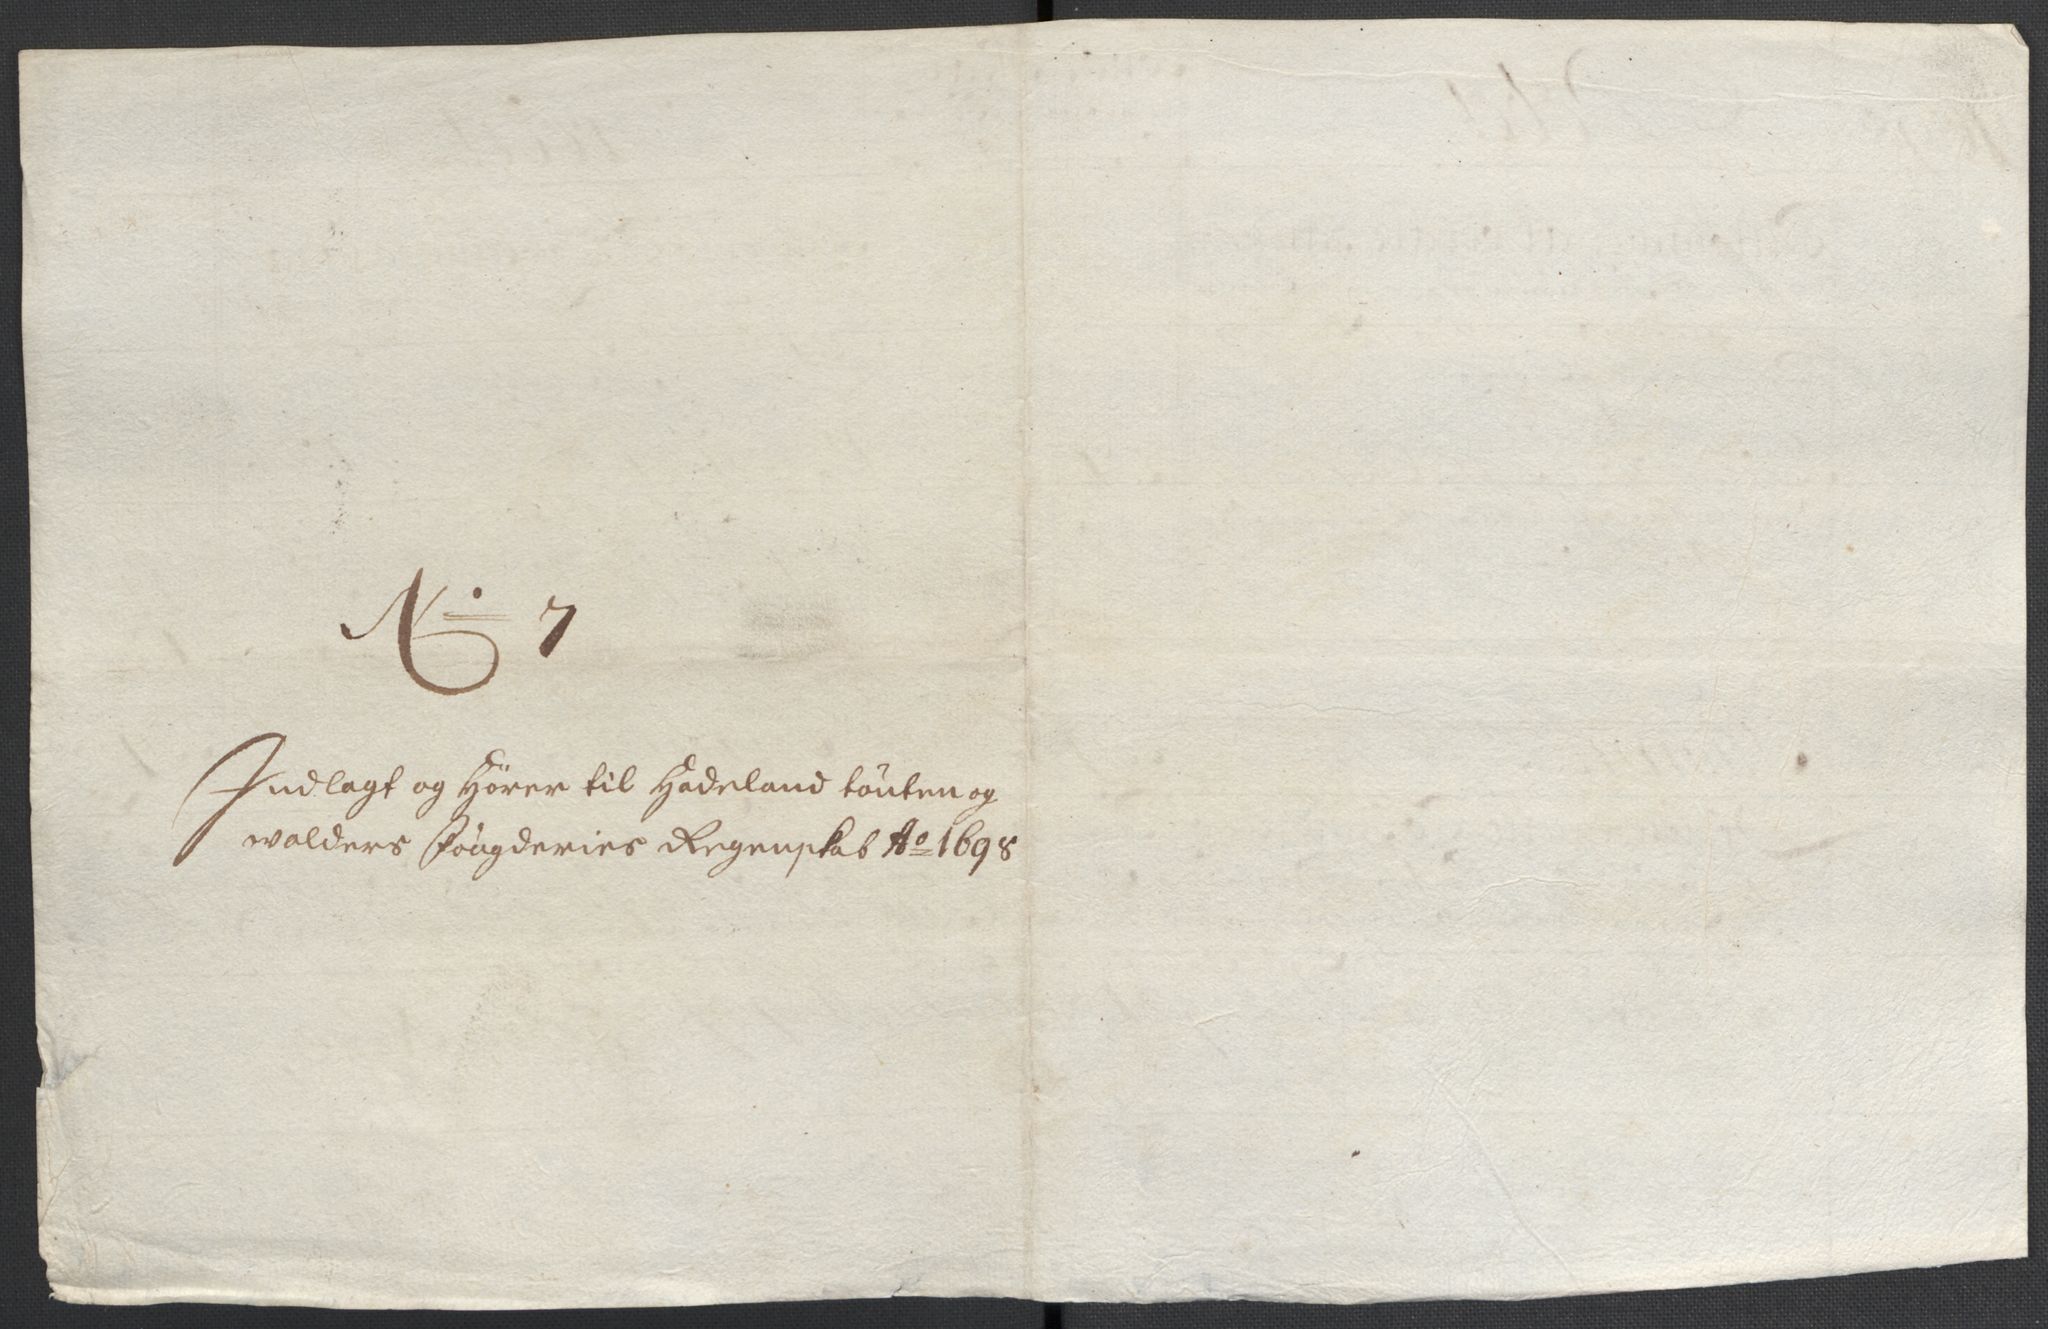 No 7
Indlagt og Hörer til Hadeland töuten og
walders föugderies Regenskab Ao 1698